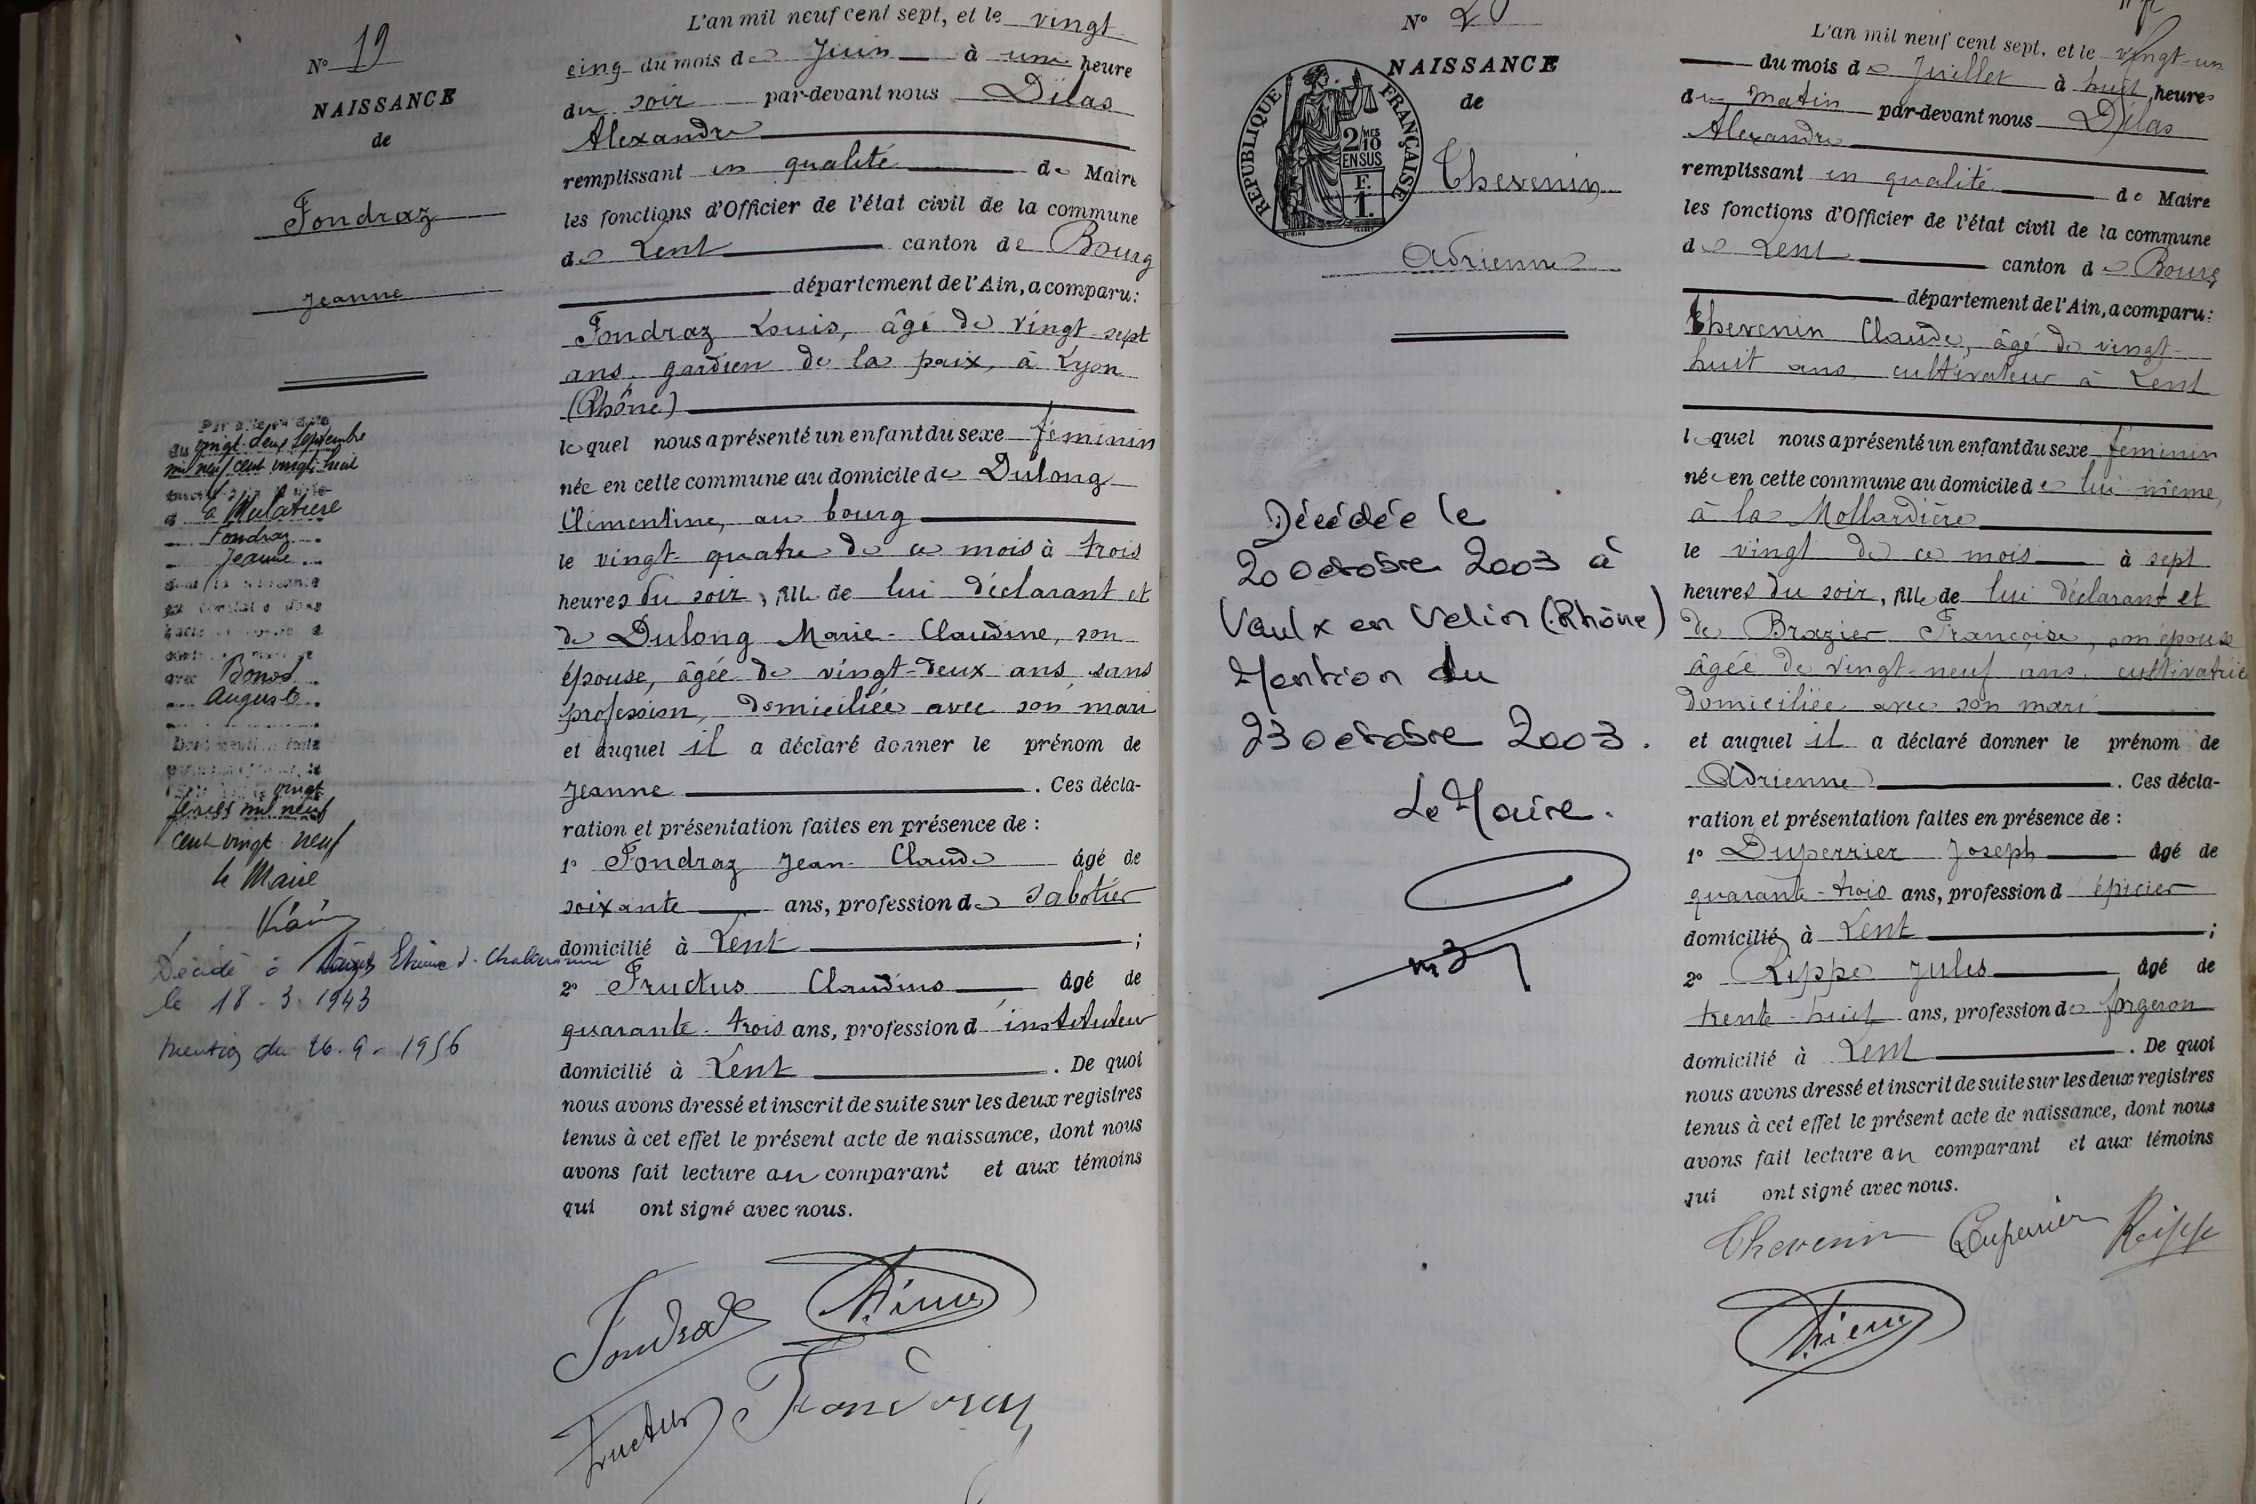 N° 19
NAISSANCE
de
Fondraz
Jeanne
du vingt-deux septembre
mil neuf cent vingt-huit
à la Mulatière
Fondraz
Jeanne
avec Bonod
Auguste
vingt
mil neuf
cent vingt neuf
le Maire
Décédé à Etienne s. Chalaronne
le 18-3-1943
mention du 26-9-1956
L'an mil neuf cent sept, et le vingt
cinq du mois de Juin à une heure
du soir par-devant nous Dilas
Alexandre
remplissant en qualité de Maire
les fonctions d'Officier de l'état civil de la commune
de Lent canton de Bourg
département de l'Ain, a comparu:
Fondraz Louis, âgé de vingt-sept
ans, gardien de la paix, à Lyon
(Rhône)
lequel nous a présenté un enfant du sexe féminin
née en cette commune au domicile de Dulong
Clémentine, au bourg
le vingt-quatre de ce mois à trois
heures du soir, fille de lui déclarant et
de Dulong Marie-Claudine, son
épouse, âgée de vingt-deux ans, sans
profession, domiciliée avec son mari
et auquel il a déclaré donner le prénom de
Jeanne . Ces décla-
ration et présentation faites en présence de :
1° Fondraz Jean-Claude âgé de
soixante ans, profession de sabotier
domicilié à Lent ;
2° Fructus Claudius âgé de
quarante-trois ans, profession d'instituteur
domicilié à Lent . De quoi
nous avons dressé et inscrit de suite sur les deux registres
tenus à cet effet le présent acte de naissance, dont nous
avons fait lecture au comparant et aux témoins
qui ont signé avec nous.
Fondraz
Fructus
N° 20
NAISSANCE
de
RÉPUBLIQUE FRANÇAISE
2/10
MES
EN SUS
F.
1.
Thevenin
Adrienne
Décédée le
20 octobre 2003 à
Vaulx en Velin (Rhône)
Mention du
23 octobre 2003.
Le Maire.
L'an mil neuf cent sept, et le vingt-un
du mois de Juillet à huit heures
du matin par-devant nous Dilas
Alexandre
remplissant en qualité de Maire
les fonctions d'Officier de l'état civil de la commune
de Lent canton de Bourg
département de l'Ain, a comparu:
Thevenin Claude, âgé de vingt-
huit ans, cultivateur à Lent
lequel nous a présenté un enfant du sexe féminin
née en cette commune au domicile de lui même,
à la Mollardière
le vingt de ce mois à sept
heures du soir, fille de lui déclarant et
de Brazier Françoise, son épouse
âgée de vingt-neuf ans, cultivatrice
domiciliée avec son mari
et auquel il a déclaré donner le prénom de
Adrienne . Ces décla-
ration et présentation faites en présence de :
1° Duperrier Joseph âgé de
quarante-trois ans, profession d'épicier
domicilié à Lent ;
2° Rippe Jules âgé de
trente-huit ans, profession de forgeron
domicilié à Lent . De quoi
nous avons dressé et inscrit de suite sur les deux registres
tenus à cet effet le présent acte de naissance, dont nous
avons fait lecture au comparant et aux témoins
qui ont signé avec nous.
Thevenin Duperrier Rippe